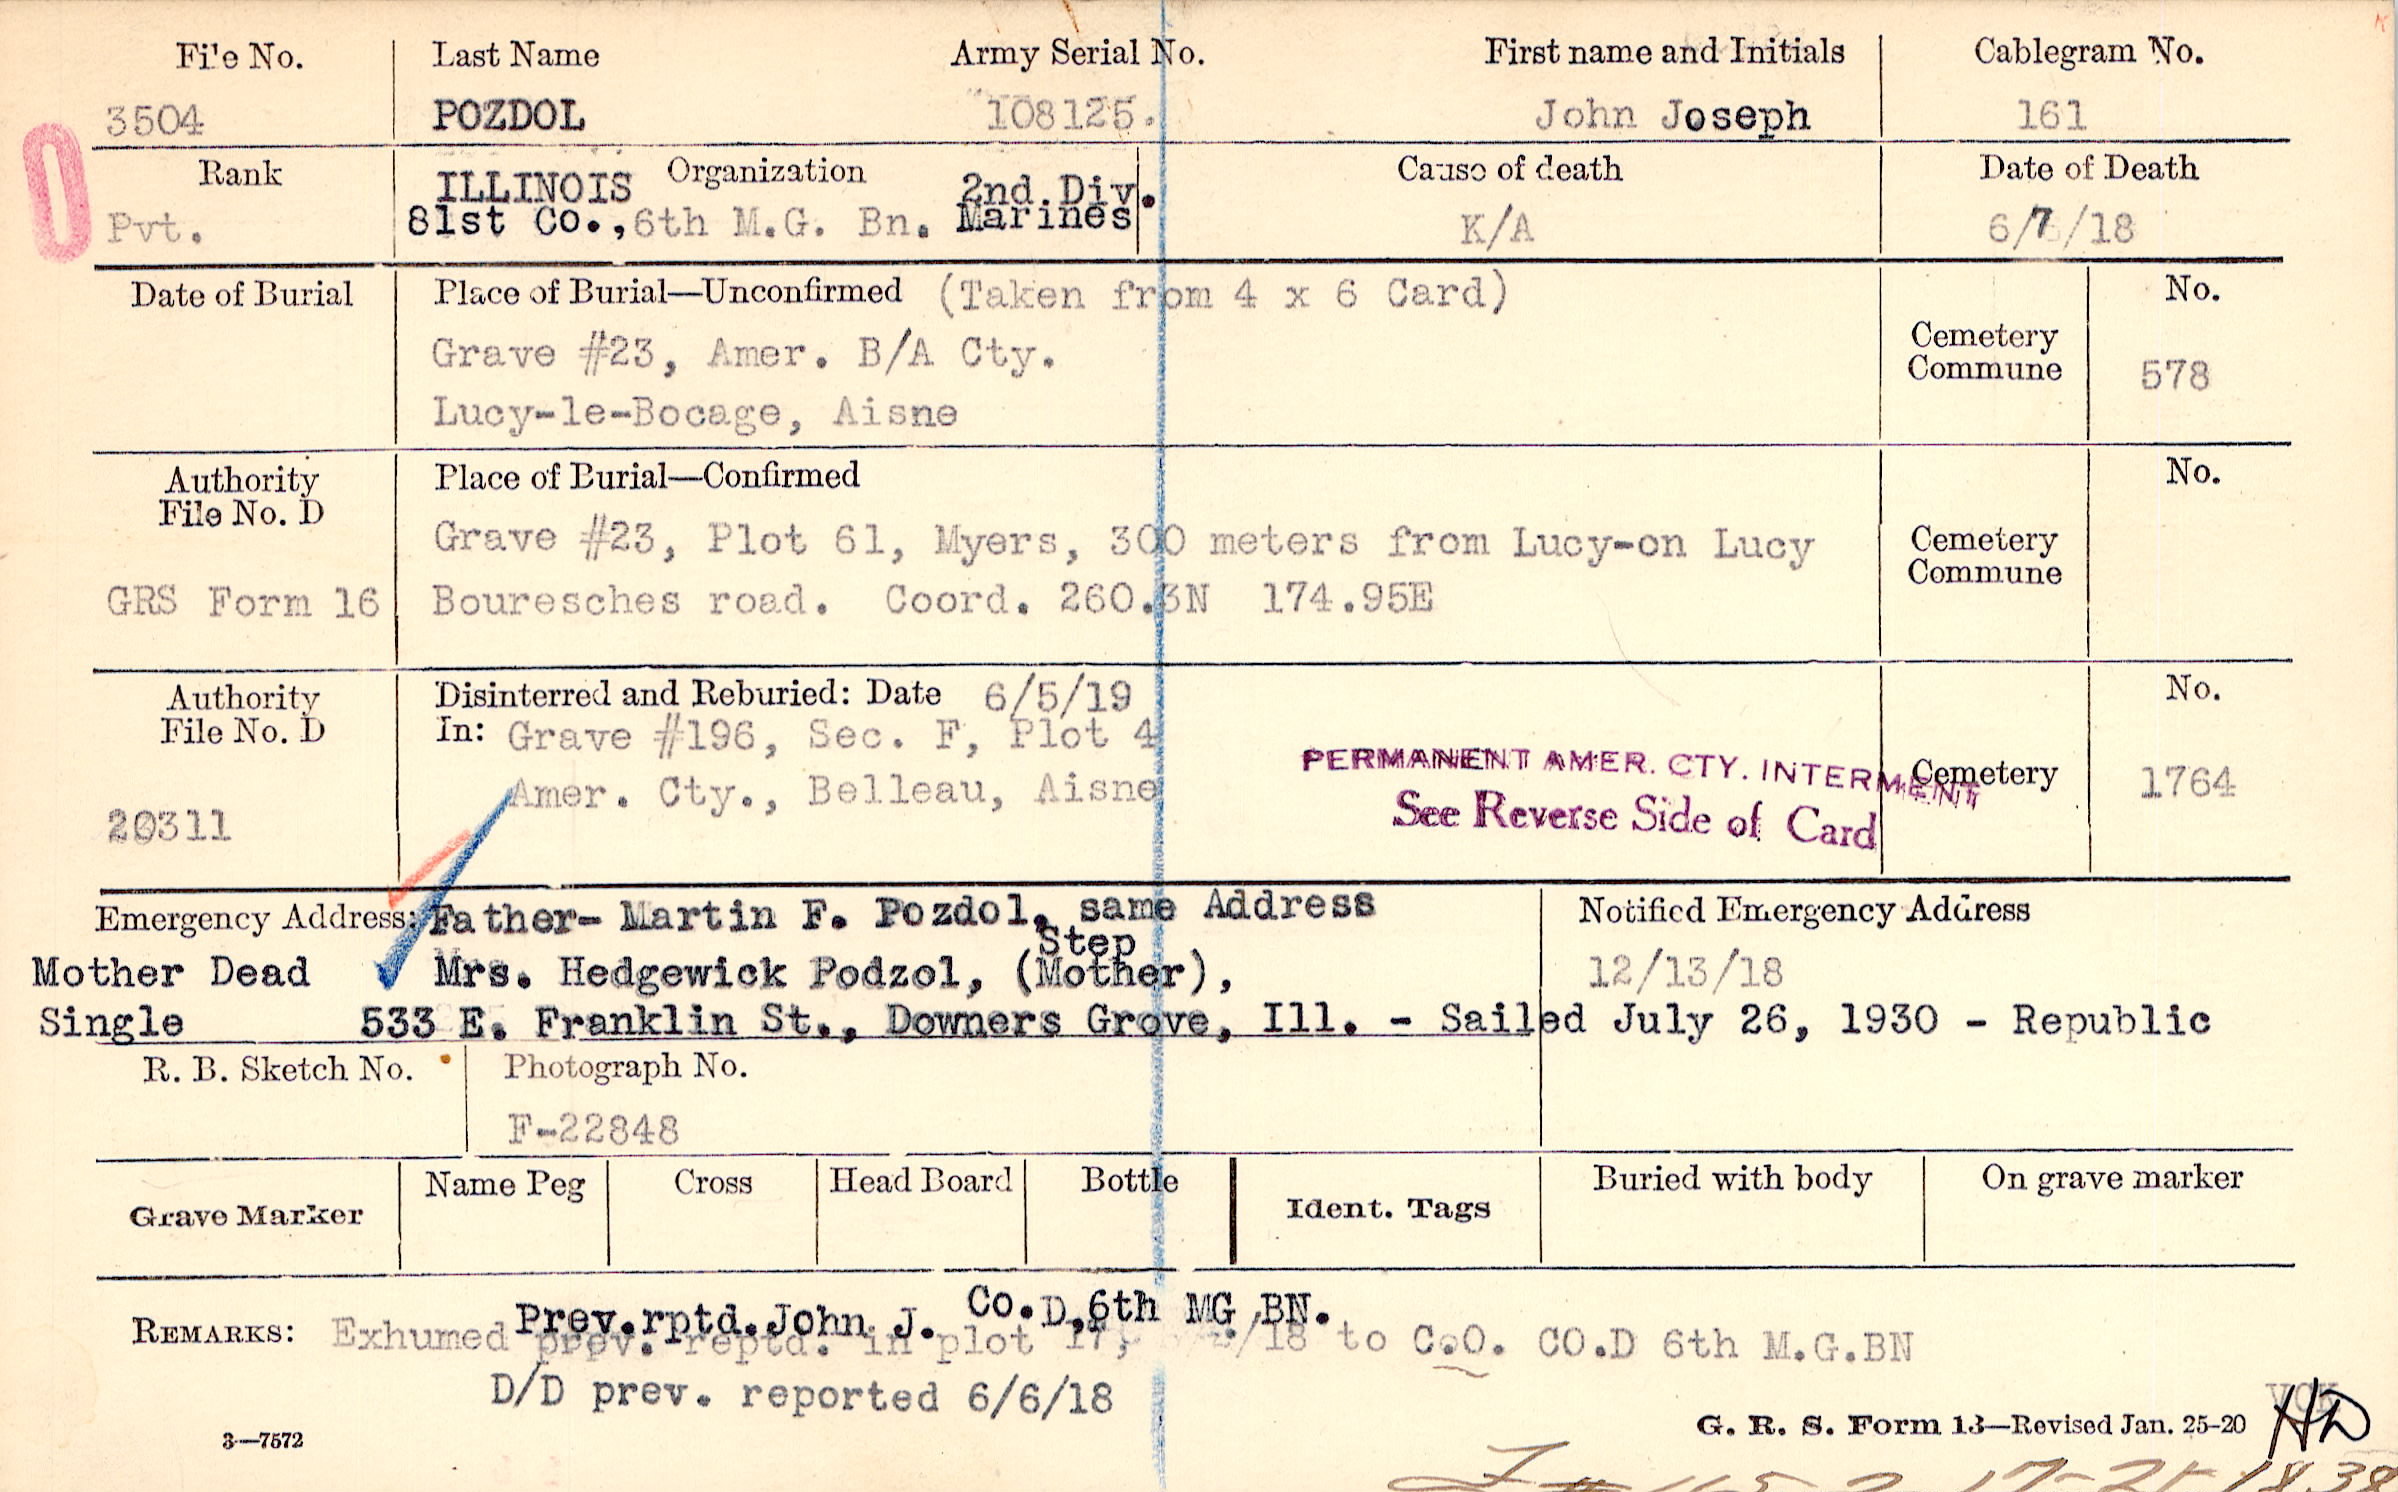 File No. Last Name Army Serial No. First name and Initials Cablegram No.
3504 POZDOL 108125. John Joseph 161
Rank Organization Cause of death Date of Death
ILLINOIS 2nd. Div.
Pvt. 81st Co., 6th M.G. Bn. Marines K/A 6/7/18
Date of Burial Place of Burial—Unconfirmed (Taken from 4 x 6 Card) No.
Grave #23, Amer. B/A Cty. Cemetery
Commune 578
Lucy-le-Bocage, Aisne
Authority Place of Burial—Confirmed No.
File No. D
Grave #23, Plot 61, Myers, 300 meters from Lucy-on Lucy Cemetery
Commune
GRS Form 16 Bouresches road. Coord. 260.3N 174.95E
Authority Disinterred and Reburied: Date 6/5/19 No.
File No. D In: Grave #196, Sec. F, Plot 4
PERMANENT AMER. CTY. INTERMENT
Amer. Cty., Belleau, Aisne Cemetery 1764
20311 See Reverse Side of Card
Emergency Address: Father- Martin F. Pozdol, same Address Notified Emergency Address
Step
Mother Dead Mrs. Hedgewick Podzol, (Mother), 12/13/18
Single 533 E. Franklin St., Downers Grove, Ill. - Sailed July 26, 1930 - Republic
R. B. Sketch No. Photograph No.
F-22848
Name Peg Cross Head Board Bottle Buried with body On grave marker
Grave Marker Ident. Tags
Prev.rptd. John J. Co.D,6th MG BN.
REMARKS: Exhumed prev. reptd. in plot 17, /18 to C.O. CO.D 6th M.G.BN
D/D prev. reported 6/6/18
3—7572 G. R. S. Form 13—Revised Jan. 25-20 HD